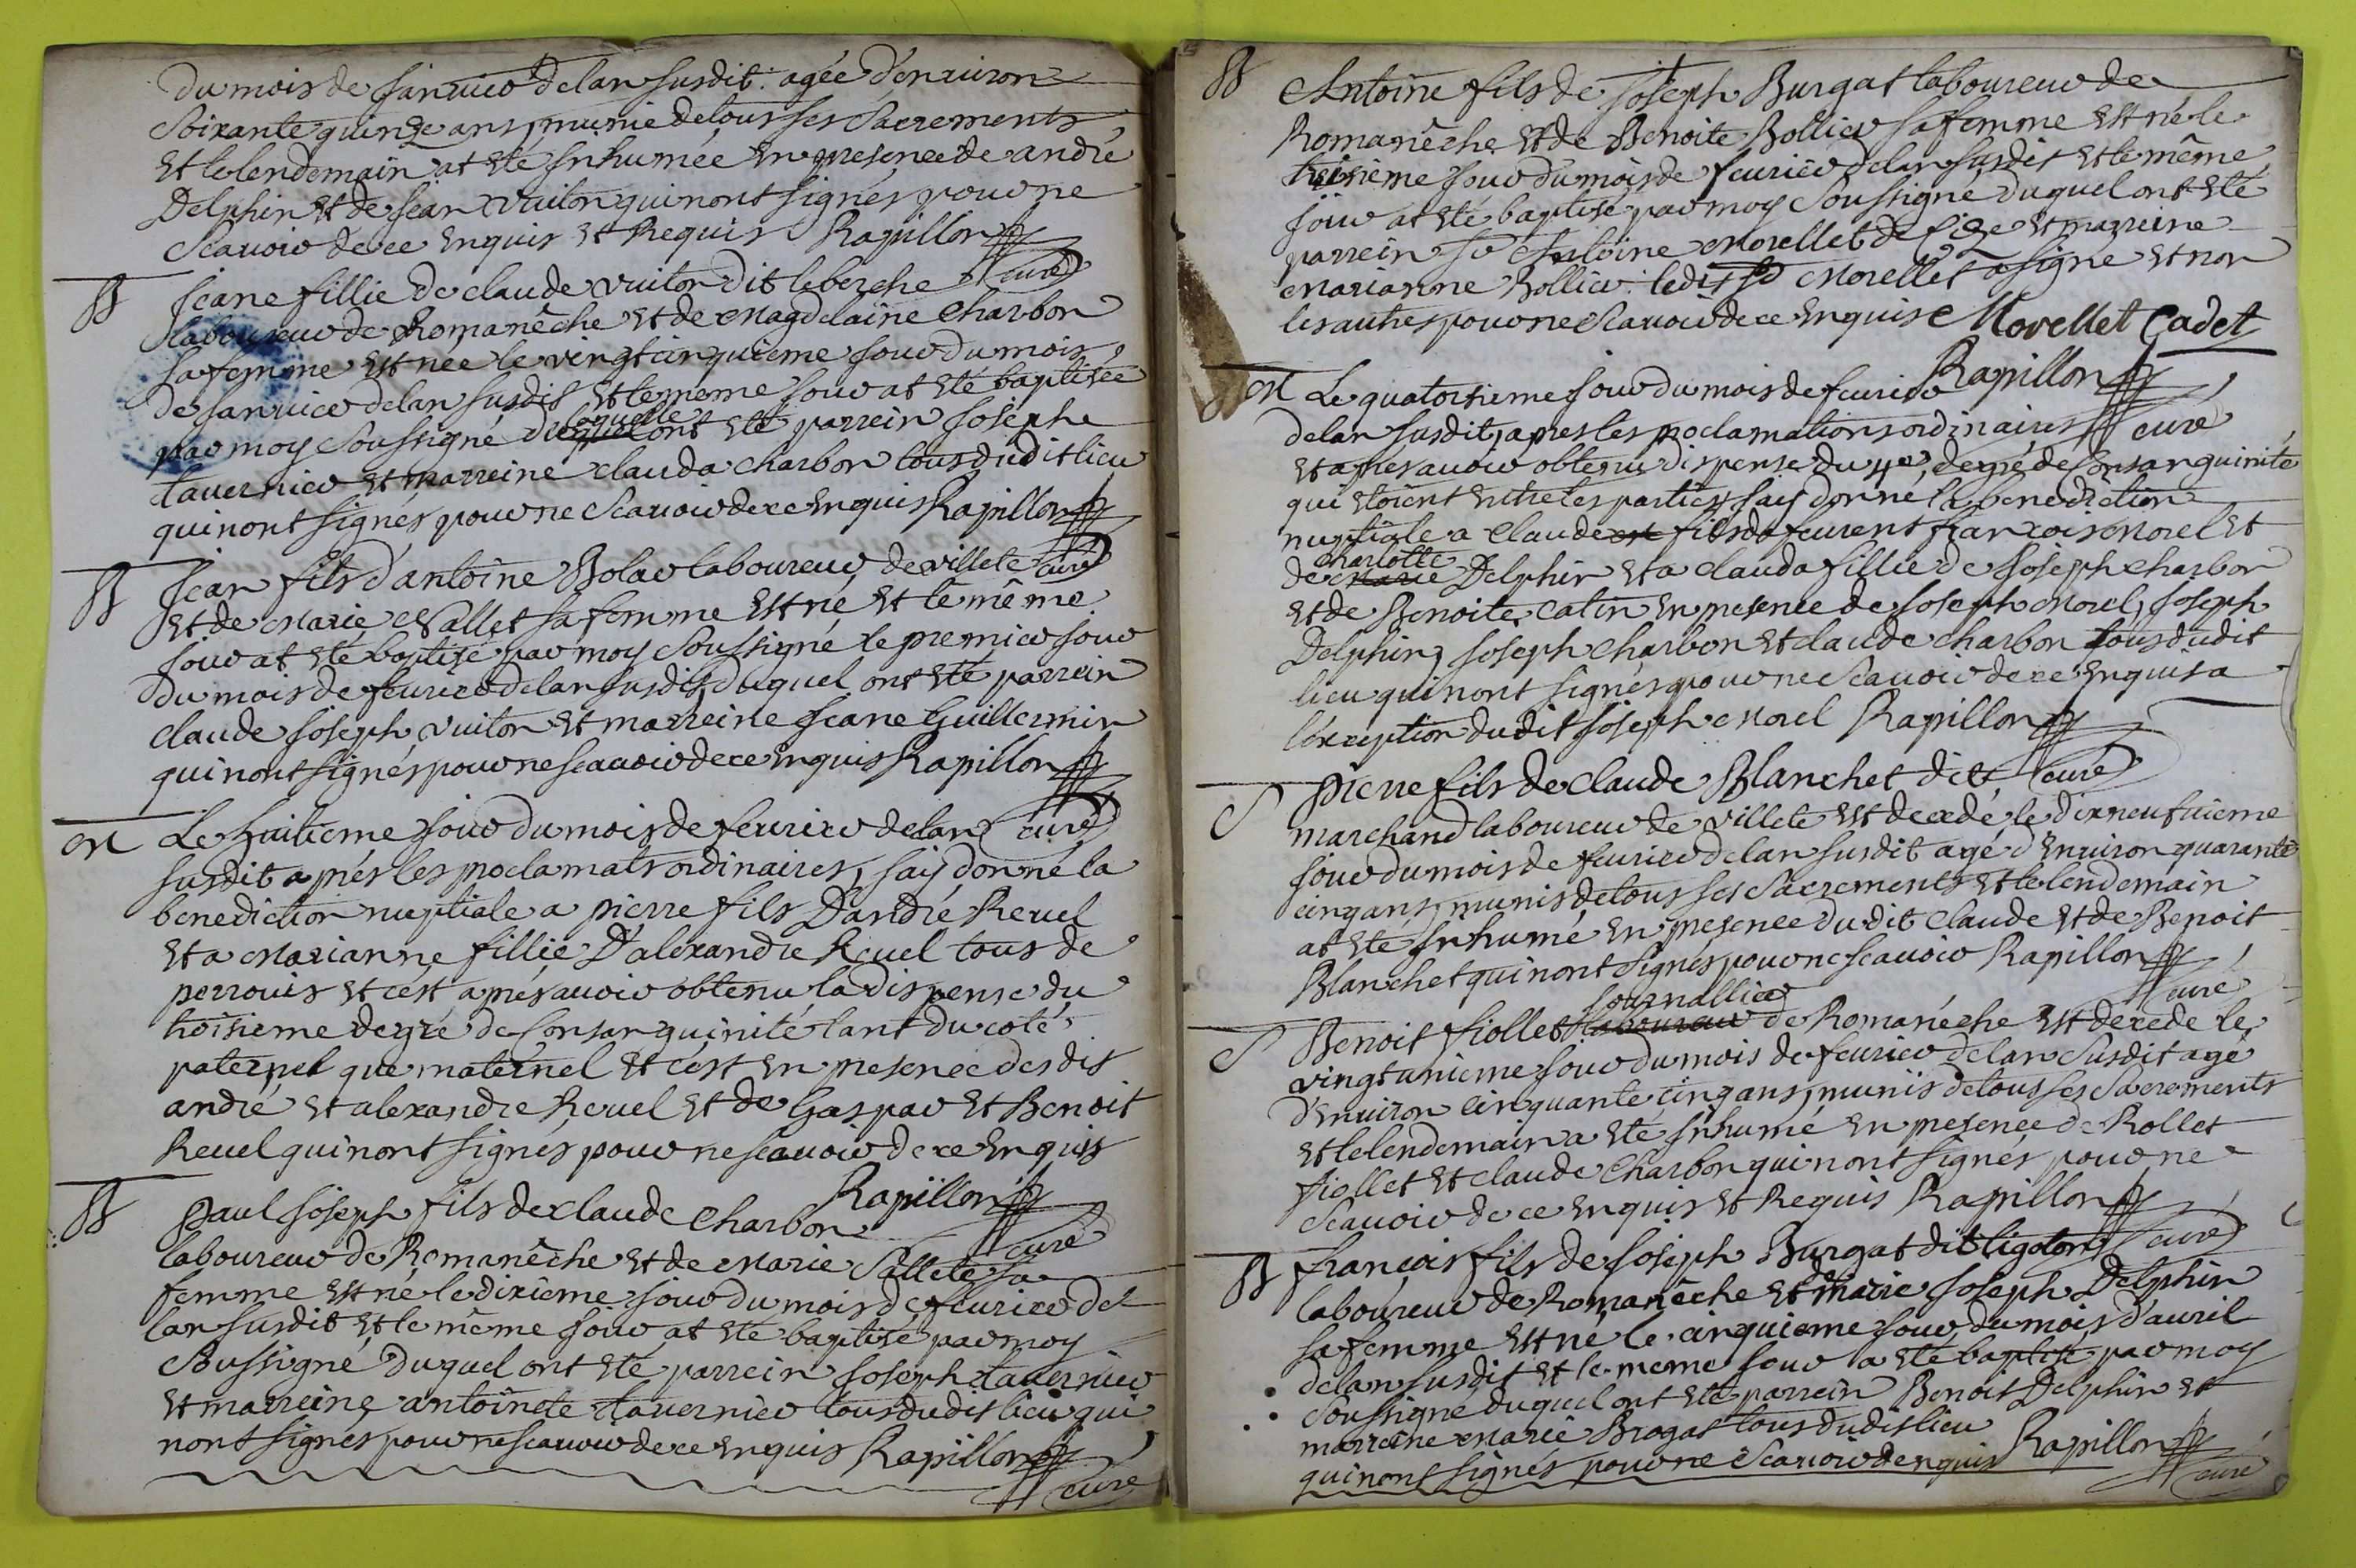 du mois de januier de lan susdit agée d'enuiron
soixante quinze ans, munie de tous ses sacrements
et le lendemain at eté inhumée en presence de andré
Delphin et de jean vuiton qui nont signés pour ne
scauoir de ce enquis et requis Rapillon
curé
B Jeane fillie de claude vuiton dit leberche
laboureur de Romanêche et de Magdelaine Charbon
sa femme est née le vingt cinquieme jour du mois
de januier de lan susdit et le meme jour at eté baptisée
par moy soussigné de laquelle ont eté parrein joseph
tauernier et marreine clauda charbon tous dudit lieu
qui nont signés pour ne scauoir de ce enquis Rapillon
curé
B Jean fils d'antoine Bolar laboureur de villete
et de Marie Sallet sa femme est né et le même
jour at eté baptisé par moy soussigné le premier jour
du mois de feurier de lan susdit, duquel ont eté parrein
claude joseph vuiton et marreine jeane Guillermin
qui nont signés pour ne scauoir de ce enquis Rapillon
curé
M Le huitieme jour du mois de feurier de lan
susdit aprés les proclamats ordinaires, jaij donné la
benediction nuptiale a pierre fils D'andré Reuel
et a Marianne fillie D'alexandre Reuel tous de
perrouis et cest aprés auoir obtenu la dispense du
troisieme degré de consanguinité tant du coté
paternel que maternel et cest en presence des dis
andré et alexandre Reuel et de Gaspar et Benoit
Reuel qui nont signés pour ne scauoir de ce enquis
Rapillon
curé
B Paul joseph fils de claude Charbon
laboureur de Romanêche et de Marie Sallete sa
femme est né le dixieme jour du mois de feurier de
lan susdit et le même jour at eté baptisé par moy
soussigné duquel ont eté parrein joseph tauernier
et marreine antoinete tauernier tous dudit lieu qui
nont signés pour ne scauoir de ce enquis Rapillon
curé
B Antoine fils de joseph Burgat laboureur de
Romanêche et de Benoite Bollier sa femme est né le
treisieme jour du mois de feurier de lan susdit et le même
jour at eté baptisé par moy soussigné duquel ont eté
parrein sr Antoine Morellet de size et marreine
Marianne Bollier. ledit sr Morellet a signé et non
les autres pour ne scauoir de ce enquis Morellet Cadet
Rapillon
M Le quatorsieme jour du mois de feurier
de lan susdit, apres les proclamations ordinaires curé
et aprés auoir obtenu dispense du 4e degré de consanguinité
qui etoient entre les parties jaij donné la benediction
nuptiale a Claude fils de feurent françois Morel et
charlotte
de Marie Delphin et a clauda fillie de joseph charbon
et de Benoite catin en presence de joseph Morel, joseph
Delphin, joseph charbon et claude charbon tous dudit
lieu qui nont signés pour ne scauoir de ce enquis a
lexception dudit joseph Morel Rapillon
curé
S pierre fils de claude Blanchet dit
marchand laboureur de villete est decedé le dixneufuieme
jour du mois de feurier de lan susdit agé d'enuiron quarante
cinq ans, munis de tous ses sacrements et le lendemain
at eté inhumé en presence dudit claude et de Benoit
Blanchet qui nont signés pour ne scauoir Rapillon
curé
journallier
S Benoit fiollet laboureur de Romanéche est decedé le
vingt unieme jour du mois de feurier de lan susdit agé
d'enuiron cinquante cinq ans, munis de tous ses sacrements
et le lendemain a eté inhumé en presence de Rollet
fiollet et claude Charbon qui nont signés pour ne
scauoir de ce enquis et Requis Rapillon
curé
B françois fils de joseph Burgat dit ligoton
laboureur de Romanêche et Marie joseph Delphin
sa femme est né le cinquieme jour du mois d'auril
de lan susdit et le meme jour a eté baptisé par moy
soussigné duquel ont eté parrein Benoit Delphin et
marreine Marie Brogat tous dudit lieu
qui nont signés pour ne scauoir de enquis Rapillon
curé